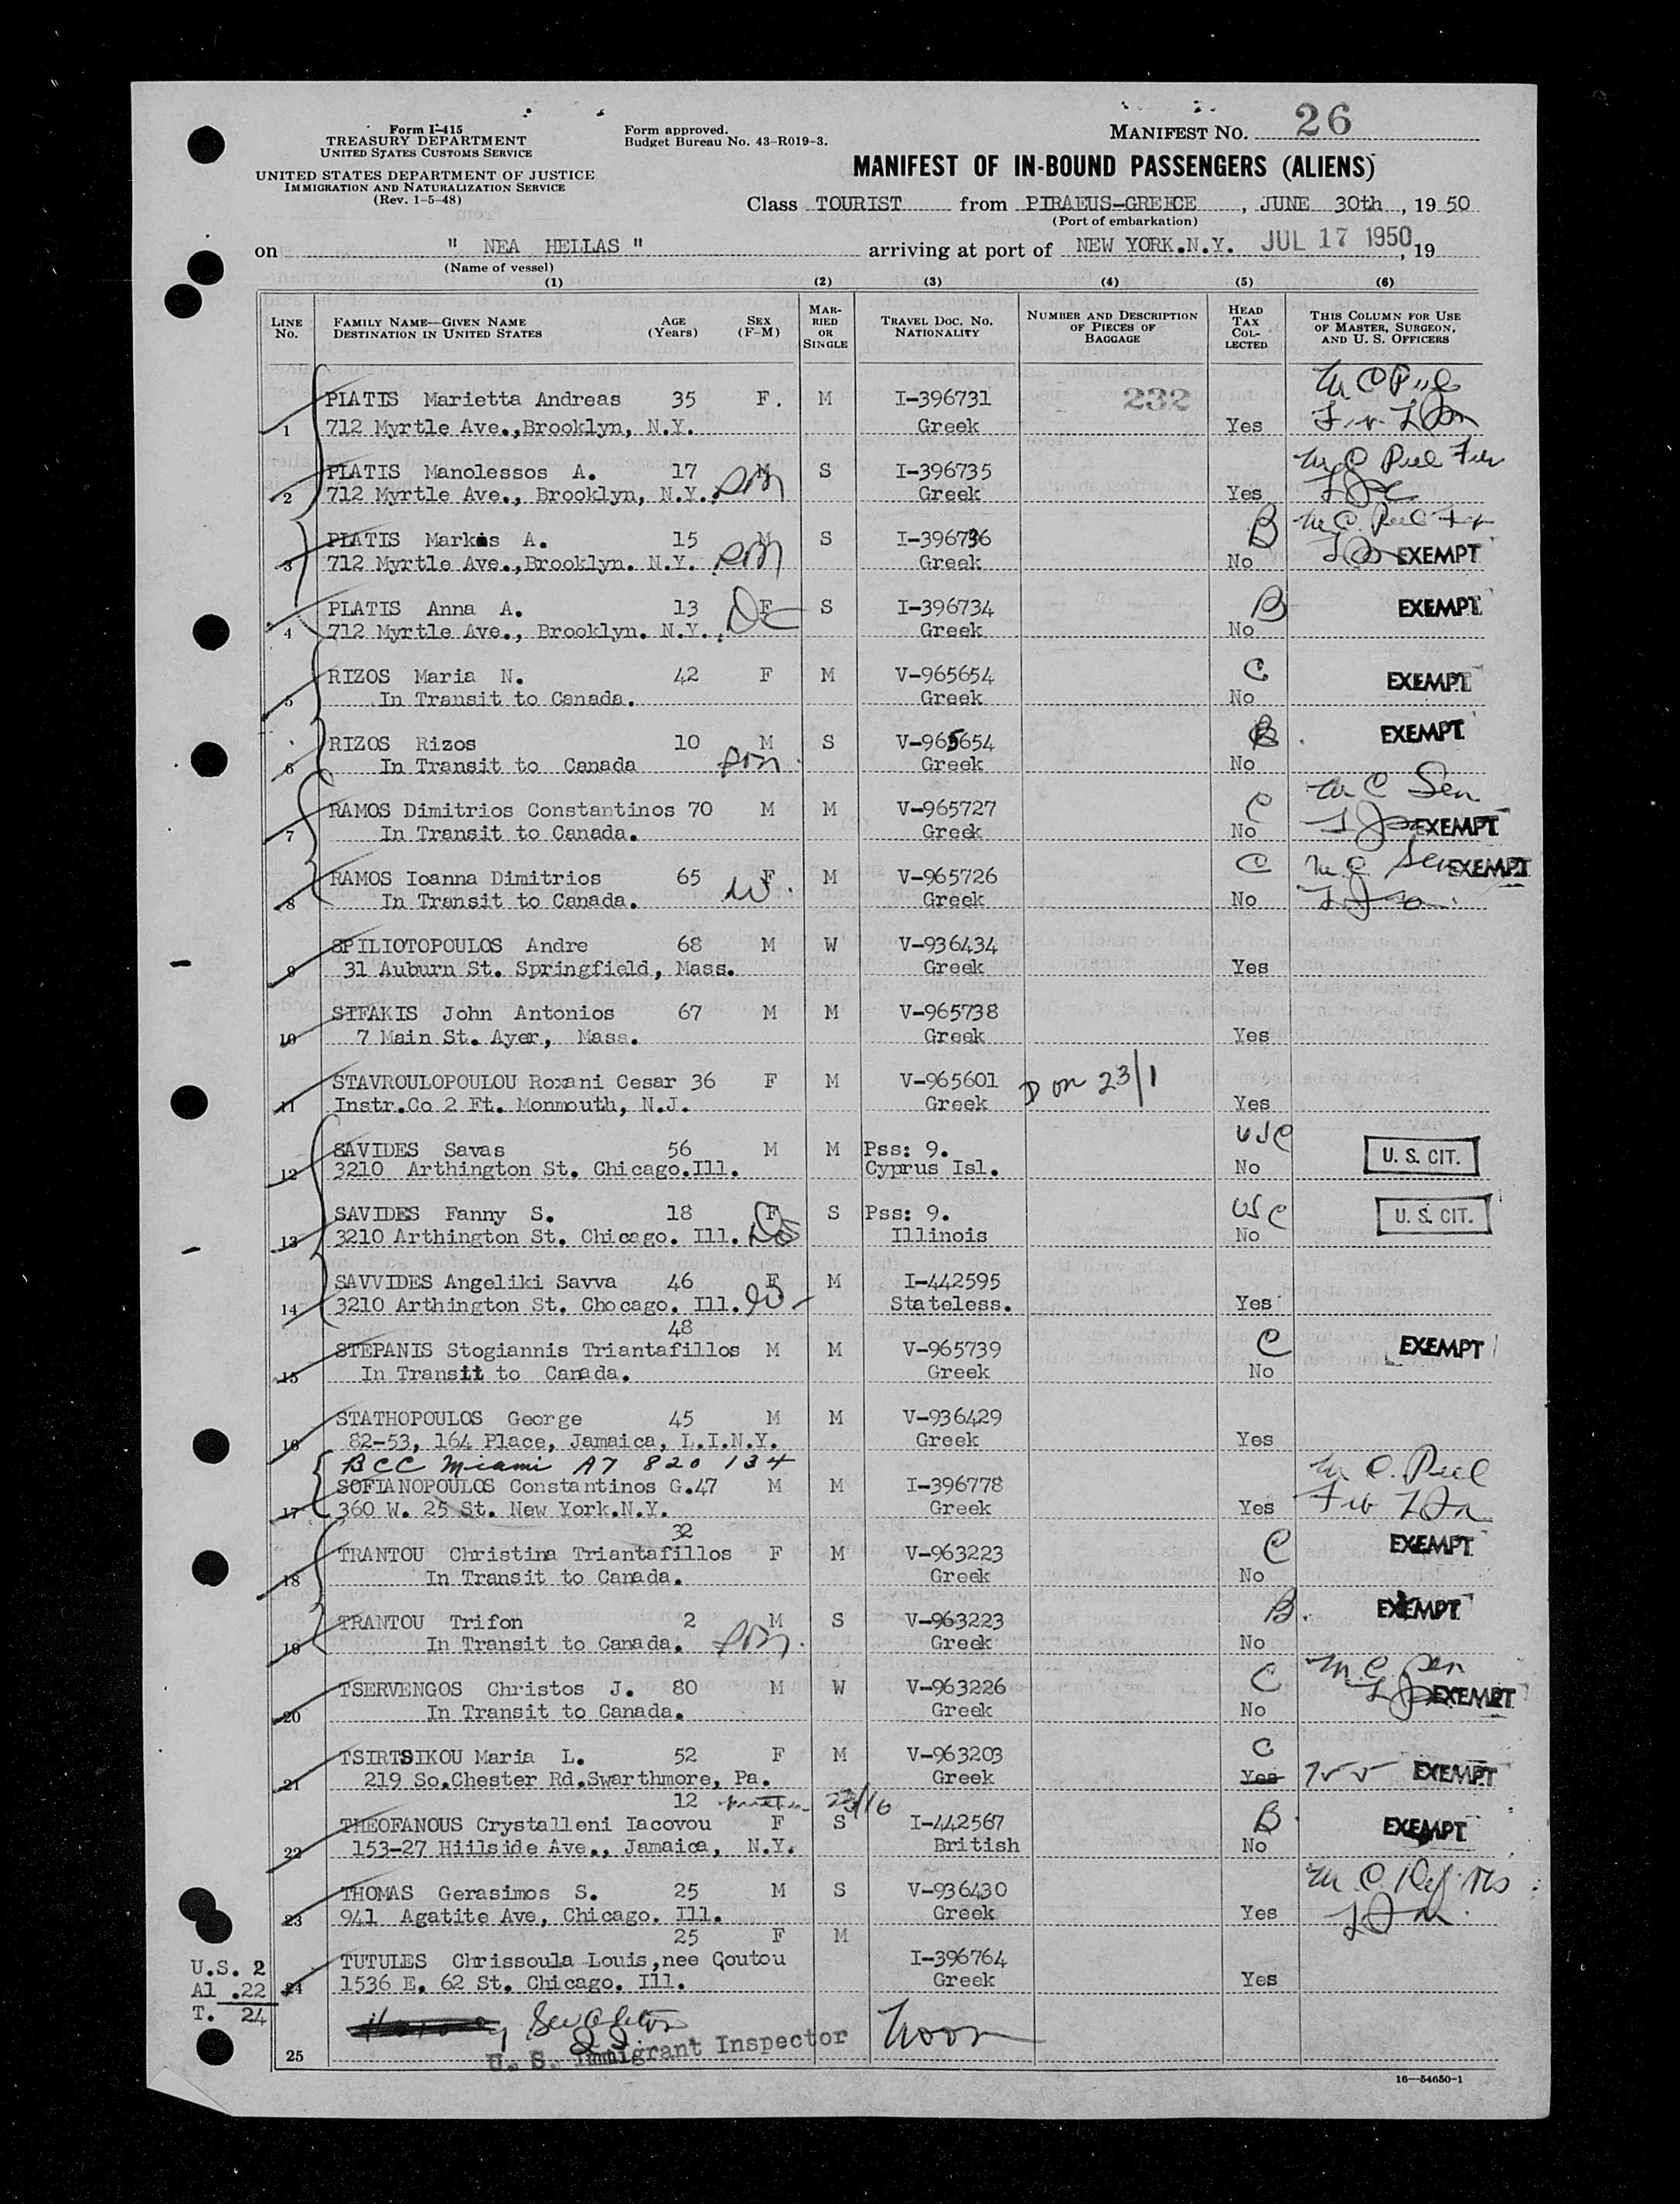 Form I-415
TREASURY DEPARTMENT
UNITED STATES CUSTOMS SERVICE
UNITED STATES DEPARTMENT OF JUSTICE
IMMIGRATION AND NATURALIZATION SERVICE
(Rev. 1-5-48)
Form approved.
Budget Bureau No. 43-R019-3.
MANIFEST NO. 26
MANIFEST OF IN-BOUND PASSENGERS (ALIENS)
Class TOURIST from PIRAEUS-GREECE, JUNE 30th, 1950
(Port of embarkation)
on " NEA HELLAS " arriving at port of NEW YORK.N.Y. JUL 17 1950, 19
(Name of vessel)
(1) (2) (3) (4) (5) (6)
LINE NO. FAMILY NAME—GIVEN NAME DESTINATION IN UNITED STATES AGE (Years) SEX (F-M) MARRIED OR SINGLE TRAVEL DOC. NO. NATIONALITY NUMBER AND DESCRIPTION OF PIECES OF BAGGAGE HEAD TAX COLLECTED THIS COLUMN FOR USE OF MASTER, SURGEON, AND U. S. OFFICERS
PIATIS Marietta Andreas 35 F. M I-396731 232
1 712 Myrtle Ave.,Brooklyn, N.Y. Greek Yes
PLATIS Manolessos A. 17 M S I-396735
2 712 Myrtle Ave., Brooklyn, N.Y. son Greek Yes
PLATIS Markos A. 15 M S I-396736 B
3 712 Myrtle Ave.,Brooklyn. N.Y. son Greek No EXEMPT
PLATIS Anna A. 13 F S I-396734 B EXEMPT
4 712 Myrtle Ave., Brooklyn. N.Y. Greek No
RIZOS Maria N. 42 F M V-965654 C EXEMPT
5 In Transit to Canada. Greek No
RIZOS Rizos 10 M S V-965654 B EXEMPT
6 In Transit to Canada son Greek No
RAMOS Dimitrios Constantinos 70 M M V-965727 C
7 In Transit to Canada. Greek No EXEMPT
RAMOS Ioanna Dimitrios 65 F M V-965726 C EXEMPT
8 In Transit to Canada. W. Greek No
SPILIOTOPOULOS Andre 68 M W V-936434
9 31 Auburn St. Springfield, Mass. Greek Yes
SIFAKIS John Antonios 67 M M V-965738
10 7 Main St. Ayer, Mass. Greek Yes
STAVROULOPOULOU Roxani Cesar 36 F M V-965601 D on 23/1
11 Instr.Co 2 Ft. Monmouth, N.J. Greek Yes
SAVIDES Savas 56 M M Pss: 9. USC U. S. CIT.
12 3210 Arthington St. Chicago.Ill. Cyprus Isl. No
SAVIDES Fanny S. 18 F S Pss: 9. USC U. S. CIT.
13 3210 Arthington St. Chicago. Ill. Illinois No
SAVVIDES Angeliki Savva 46 F M I-442595
14 3210 Arthington St. Chocago. Ill. W Stateless. Yes
48
STEPANIS Stogiannis Triantafillos M M V-965739 C EXEMPT
15 In Transit to Canada. Greek No
STATHOPOULOS George 45 M M V-936429
16 82-53, 164 Place, Jamaica, L.I.N.Y. Greek Yes
BCC Miami A7 820 134
SOFIANOPOULOS Constantinos G.47 M M I-396778
17 360 W. 25 St. New York.N.Y. Greek Yes
32
TRANTOU Christina Triantafillos F M V-963223 C EXEMPT
18 In Transit to Canada. Greek No
TRANTOU Trifon 2 M S V-963223 B. EXEMPT
19 In Transit to Canada. son. Greek No
TSERVENGOS Christos J. 80 M W V-963226 C
20 In Transit to Canada. Greek No EXEMPT
TSIRTSIKOU Maria L. 52 F M V-963203 C
21 219 So.Chester Rd.Swarthmore, Pa. Greek Yes EXEMPT
12
THEOFANOUS Crystalleni Iacovou F S I-442567 B EXEMPT
22 153-27 Hiilside Ave., Jamaica, N.Y. British No
THOMAS Gerasimos S. 25 M S V-936430
23 941 Agatite Ave, Chicago. Ill. Greek Yes
25 F M
TUTULES Chrissoula Louis,nee Goutou I-396764
24 1536 E. 62 St. Chicago. Ill. Greek Yes
U.S. 2
Al .22
T. 24
25 U. S. Immigrant Inspector
16—54650-1